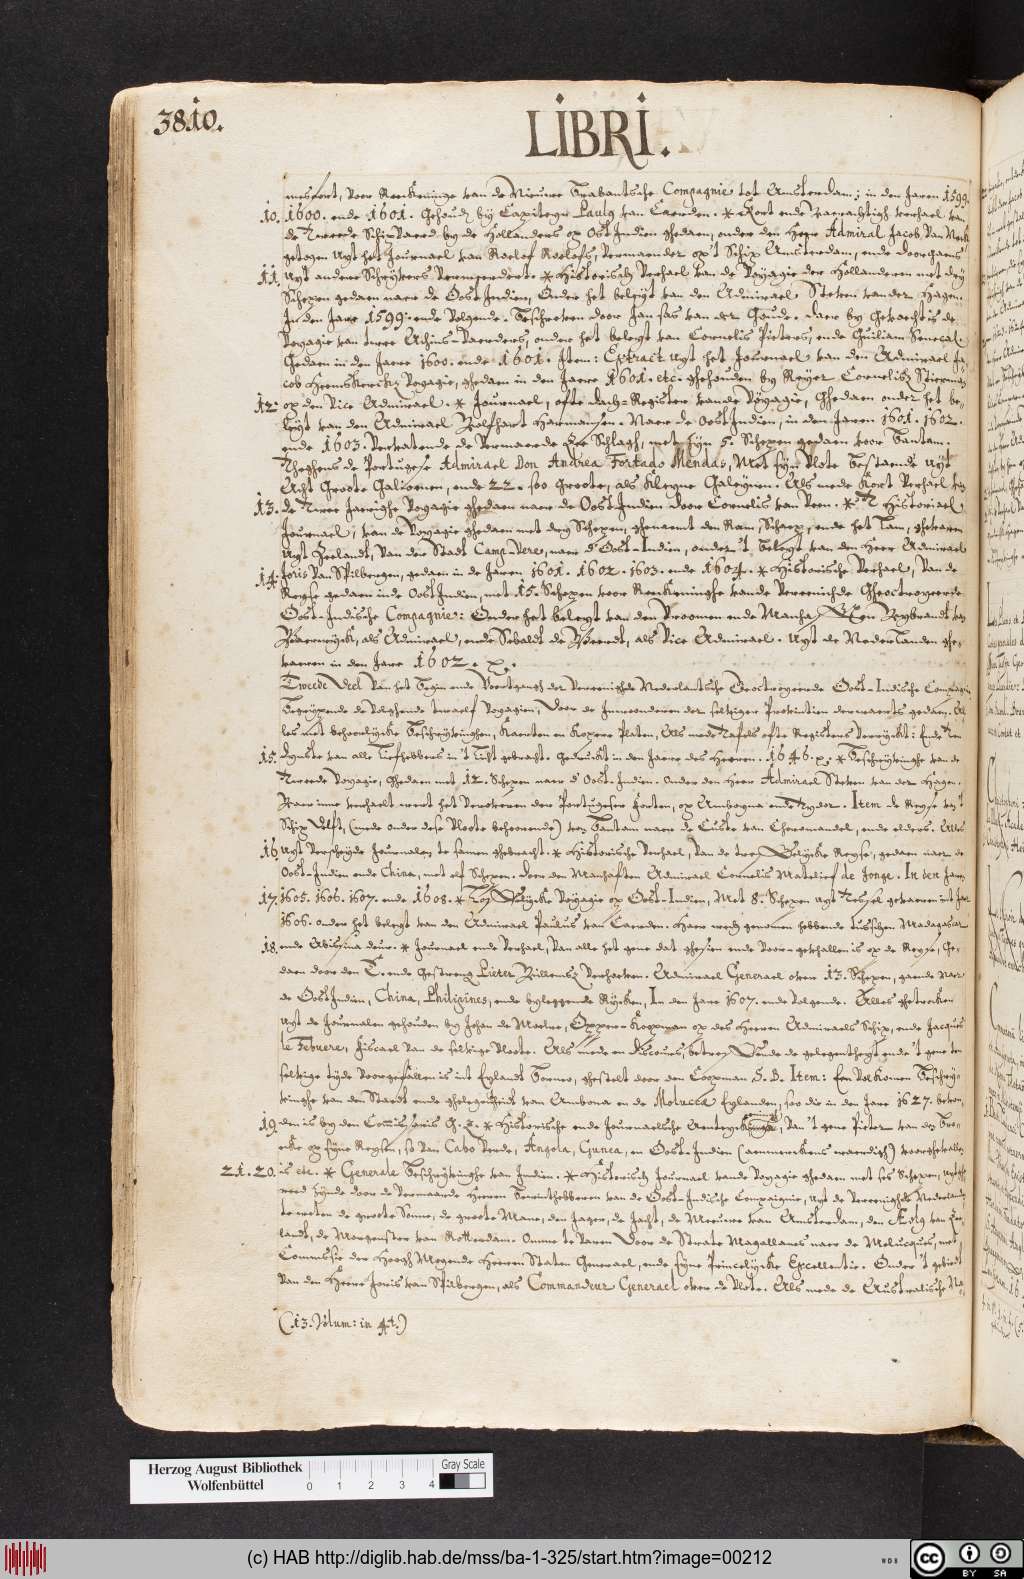 3810.
LIBRI.
voor Reeckeninge van de Nieuwe Brabantsche Compagnie tot Amsterdam; in den Jaren 1599.
10. 1600. ende 1601. Gehoudẽ bij Capiteyn Paulg van Caerden. * Kort ende waerachtigh verhael van
de Tweede Schip-Vaerd by de Hollanders op Oost Indien ghedaen, onder den Heer Admiral Jacob Van Neck
getogen Uyt het Journael van Roelof Roelofs, Vermaender op 't Schip Amsterdam, ende doorgaens
11. Uyt andere Schryvers Vermeerdert. * Historisch Verhael Van de Voyagie der Hollanderen met dry
Schepen gedaen naer de Oost Indien, Onder het beleyt van den Admirael Steven vander Hagen.
In den Jare 1599. ende Volgende. Beschreven door Jan Sas van der Goude. Daer by gebracht is de
Voyagie van twee Achins-Vaerders, onder het beleyt van Cornelis Pieters, ende Guiliam Senecal.
Gedaen in den Jaere 1600. ende 1601. Item: Extract uyt het Journael van den Admirael Ja-
cob Heemskercks Voyagie, ghedaen in den Jaere 1601. etc. ghehouden by Reyer Cornelisz Stierman
12. op den Vice Admirael. * Journael, ofte Dach-Register vande Voyagie, Ghedaen onder het be-
leyt van den Admirael Wolfhart Harmansen. Naer de Oost Indien, in den Jaren 1601. 1602.
ende 1603. Vervatende de Vermaerde Zee Schlagh, met syn 5. Schepen gedaen voor Bantam.
Theghens de Portugese Admirael Don Andrea Fortado Mendas, Met syn Vlote bestaende uyt
Acht Groote Galioenen, ende 22. soo Groote, als Kleyne Galeyen. Als mede Kort Verhael van
13. de Twee Jaerighe Voyagie ghedaen naer de Oost Indien door Cornelis van Veen. * 'T Historiael
Journael, van de Voyagie ghedaen met dry Schepen, ghenaemt den Ram, Schaep, ende het Lam, ghevaren
Uyt Zeelandt, Van der Stadt Camp-Vere, naer d' Oost-Indien, onder 't beleyt van den Heer Admirael
14. Joris Van Spilbergen, gedaen in de Jaren 1601. 1602. 1603. ende 1604. * Historische Verhael, Van de
Reyse gedaen inde Oost Indien, met 15. Schepen voor Reeckeninghe vande Vereenichde Gheoctroyeerde
Oost-Indische Compagnie: Onder het beleyt van den Vroomen ende Wybrandt van
Waerwijck, als Admirael, ende Sebaldt de Weerdt, als Vice Admirael. Uyt de Nederlanden ghe-
vaeren in den Jare 1602.
Tweede Deel Van het Begin ende Voortgangh der Vereenighde Nederlantsche Geoctroyeerde Oost-Indische Compagnie
Begrypende de Volghende twaelf Voyagien, Door de Inwoonderen der selviger Provintien derwaerts gedaen. Al-
les met behoorlijcke Beschrijvinghen, Kaerten en Kopere Platen, Als mede Tafels ofte Registers Verryckt: Ende ten
15. Dienste van alle Liefhebbers in 't Licht gebracht. Gedruckt in den Jaere des Heeren. 1646. * Beschrijvinghe van de
Tweede Voyagie, Ghedaen met 12. Schepen naer d' Oost-Indien. Onder den Heer Admirael Steven van der Hagen.
Waer inne verhaelt wert het Veroveren der Portugeser Forten, op Amboyna ende Tydor. Item de Reyse van 't
Schip Delft, (mede onder dese Vloote behoorende) van Bantam naer de Custe van Choromandel, ende elders. Alles
16. Uyt Verscheyde Journalen te samen ghebracht. * Historische Verhael, Van de Reyse, gedaen naer de
Oost-Indien ende China, met elf Schepen. Door den Manhaften Admirael Cornelis Matelief de Jonge. In den Jaren
17. 1605. 1606. 1607. ende 1608. * Voyagie op Oost-Indien, Met 8. Schepen uyt Tessel gevaeren int Jaer
1606. onder het beleyt van den Admirael Paulus van Caerden. Haer wech genomen hebbende tusschen Madagascar
18. ende Abissina deur. * Journael ende Verhael, Van alle het gene dat ghesien ende Voor-gevallen is op de Reyse, Ge-
daen door den E. ende Gestreng Pieter Willemsz Verhoeven. Admirael Generael over 13. Schepen, gaende naer
de Oost Indien, China, Philipines, ende byleggende Rijcken, In den Jare 1607. ende Volgende. Alles ghetrocken
Uyt de Journalen gehouden by Johan de Moelre, Opper-Koopman op des Heeren Admiraels Schip, ende Jacques
le Febuere, Fiscael Van de selvige Vloote. Als mede en Discours, de gelegentheyt ende 't gene ten
selvige tijde Voorgefallen is int Eylandt Borneo, ghestelt door den Coopman S. B. Item: Een Volkomen Beschrij-
vinghe van den Staedt ende ghelegentheit van Ambona en de Molucca Eylanden, soo die in den Jare 1627. bevon-
19. den is by den Comissaris G. Z. * Historische ende Journaelsche Aenteyckeninge, Van 't gene Pieter van den Bro-
ecke op syne Reysen, so Van Cabo Verde, Angola, Gunea, en Oost-Indien (aenmerckens waerdigh) voorghevallen
21. 20. is etc. * Generale Beschrijvinghe van Indien. * Historisch Journael vande Voyagie ghedaen met ses Schepen, uytghe-
reed zijnde door de Vermaerde Heeren Bewinthebberen van de Oost-Indische Compaignie, uyt de Vereenighde Nederlanden
te weten de groote Sonne, de groote Mane, den Jager, de Jacht, de Meeuwe van Amsterdam, den Æolg van Zee-
landt, de Morgenster van Rotterdam. Omme te Varen Door de Strate Magallanes naer de Molucques, met
Commissie der Hoogh Mogende Heeren Staten Generael, ende syne Princelijcke Excellentie. Onder 't gebiedt
Van den Heere Joris van Spilbergen, als Commandeur Generael over de Vlote. Als mede de Australische Na-
(13. Volum: in 4t.)
Herzog August Bibliothek
Wolfenbüttel
0 1 2 3 4
Gray Scale
(c) HAB http://diglib.hab.de/mss/ba-1-325/start.htm?image=00212
WDB
cc BY SA